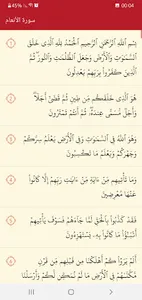 45%
00:04
سورة الأنعام
1
بِسْمِ اللَّهِ الرَّحْمَٰنِ الرَّحِيمِ الْحَمْدُ لِلَّهِ الَّذِي خَلَقَ
السَّمَٰوَٰتِ وَالْأَرْضَ وَجَعَلَ الظُّلُمَٰتِ وَالنُّورَ ثُمَّ
الَّذِينَ كَفَرُوا بِرَبِّهِمْ يَعْدِلُونَ
2
هُوَ الَّذِي خَلَقَكُم مِّن طِينٍ ثُمَّ قَضَىٰ أَجَلًا
وَأَجَلٌ مُّسَمًّى عِندَهُ ثُمَّ أَنتُمْ تَمْتَرُونَ
3
وَهُوَ اللَّهُ فِي السَّمَٰوَٰتِ وَفِي الْأَرْضِ يَعْلَمُ سِرَّكُمْ
وَجَهْرَكُمْ وَيَعْلَمُ مَا تَكْسِبُونَ
4
وَمَا تَأْتِيهِم مِّنْ ءَايَةٍ مِّنْ ءَايَٰتِ رَبِّهِمْ إِلَّا كَانُوا
عَنْهَا مُعْرِضِينَ
5
فَقَدْ كَذَّبُوا بِالْحَقِّ لَمَّا جَاءَهُمْ فَسَوْفَ يَأْتِيهِمْ
أَنبَٰٓؤُا مَا كَانُوا بِهِ يَسْتَهْزِءُونَ
6
أَلَمْ يَرَوْا كَمْ أَهْلَكْنَا مِن قَبْلِهِم مِّن قَرْنٍ
مَّكَّنَّٰهُمْ فِي الْأَرْضِ مَا لَمْ نُمَكِّن لَّكُمْ وَأَرْسَلْنَا